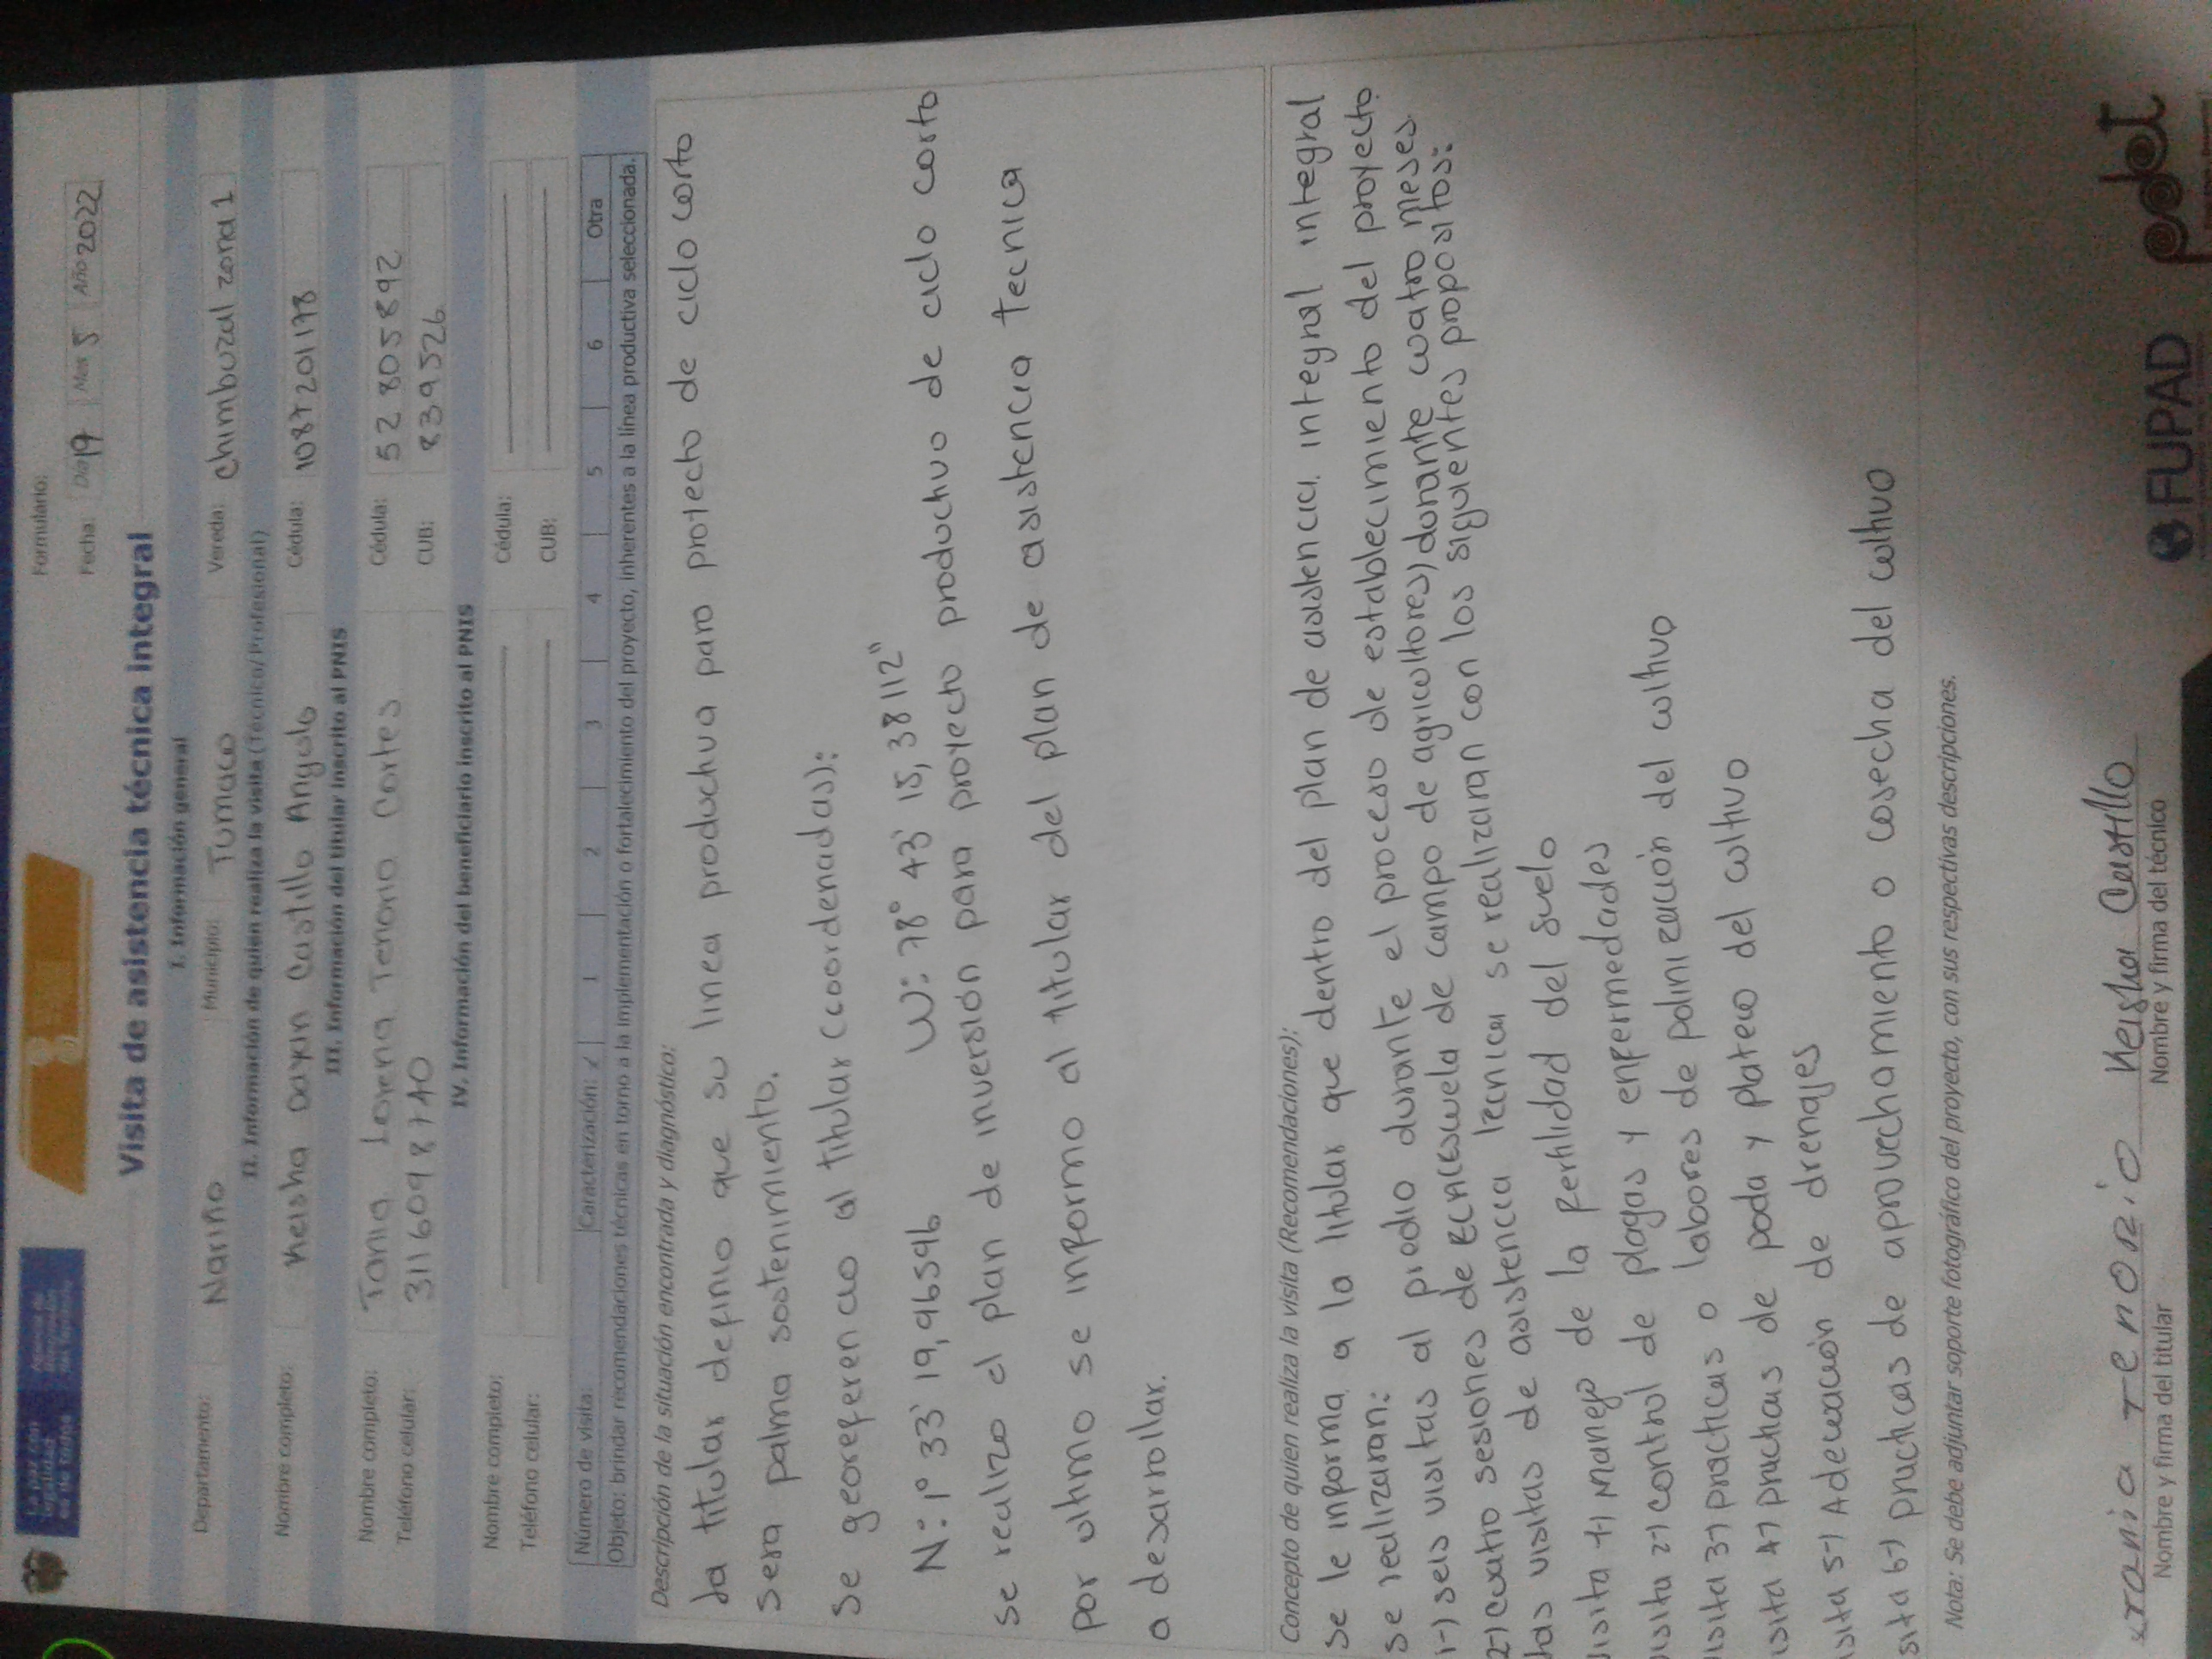 Formulario:
Fecha: Día 19 Mes 5 Año 2022
Visita de asistencia técnica integral
I. Información general
Departamento: Nariño Municipio: Tumaco Vereda: chimbuzal zona 1
II. Información de quien realiza la visita (Técnico/Profesional)
Nombre completo: Neisha Daxin Castillo Angulo Cédula: 1087201178
III. Información del titular inscrito al PNIS
Nombre completo: Tania Lorena Tenorio Cortes Cédula: 52805892
Teléfono celular: 3116098740 CUB: 839526
IV. Información del beneficiario inscrito al PNIS
Nombre completo: Cédula:
Teléfono celular: CUB:
Número de visita: Caracterización: ✓ 1 2 3 4 5 6 Otra
Objeto: brindar recomendaciones técnicas en torno a la implementación o fortalecimiento del proyecto, inherentes a la línea productiva seleccionada.
Descripción de la situación encontrada y diagnóstico:
La titular definio que su linea productiva para protecto de ciclo corto
sera palma sostenimiento.
Se georeferencio al titular (coordenadas):
N: 1° 33' 19,96596 W: 78° 43' 15,38112"
se realizo el plan de inversión para proyecto productivo de ciclo corto
por ultimo se informo al titular del plan de asistencia tecnica
a desarrollar.
Concepto de quien realiza la visita (Recomendaciones):
se le informa a la titular que dentro del plan de asistencia integral integral
se realizaran:
1-) seis visitas al predio durante el proceso de establecimiento del proyecto
2-) cuatro sesiones de ECA(escuela de campo de agricultores) durante cuatro meses.
las visitas de asistencia tecnica se realizaran con los siguientes propositos:
visita 1-) Manejo de la fertilidad del suelo
visita 2-) control de plagas y enfermedades
visita 3-) practicas o labores de polinización del cultivo
visita 4-) practicas de poda y plateo del cultivo
visita 5-) Adecuación de drenajes
sita 6-) practicas de aprovechamiento o cosecha del cultivo
Nota: Se debe adjuntar soporte fotográfico del proyecto, con sus respectivas descripciones.
x Tania Tenorio Neisha Castillo
Nombre y firma del titular Nombre y firma del técnico
FUPAD pdet